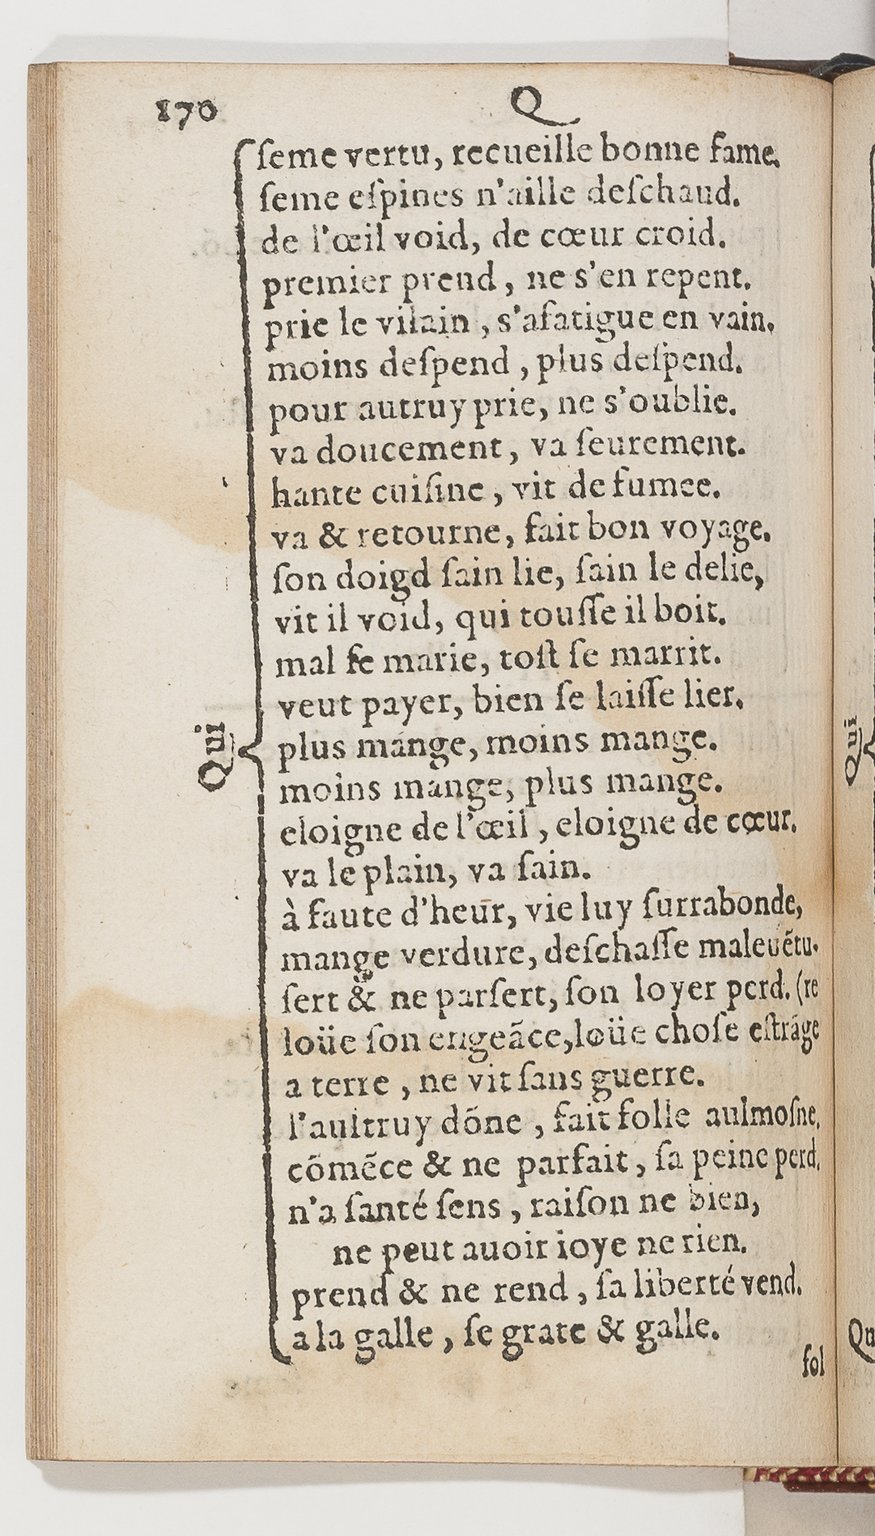 170 Q
ſeme vertu, recueille bonne fame.
ſeme eſpines n'aille deſchaud.
de l'œil void, de cœur croid.
premier prend, ne s'en repent.
prie le vilain, s'afatigue en vain.
moins deſpend, plus deſpend.
pour autruy prie, ne s'oublie.
va doucement, va ſeurement.
hante cuiſine, vit de fumee.
va & retourne, fait bon voyage.
ſon doigd ſain lie, ſain le delie,
vit il void, qui touſſe il boit.
mal ſe marie, toſt ſe marrit.
veut payer, bien ſe laiſſe lier.
Qui
plus mange, moins mange.
moins mange, plus mange.
eloigne de l'œil, eloigne de cœur.
va le plain, va ſain.
à faute d'heur, vie luy ſurrabonde,
mange verdure, deſchaſſe malevẽtu-
ſert & ne parſert, ſon loyer perd. (re
loüe ſon engeãce, loüe choſe eſtrãge
a terre, ne vit ſans guerre.
l'aultruy dõne, fait folle aulmoſne,
cõmẽce & ne parfait, ſa peine perd.
n'a ſanté ſens, raiſon ne bien,
ne peut auoir ioye ne rien.
prend & ne rend, ſa liberté vend.
a la galle, ſe grate & galle.
fol
Qui
Qu